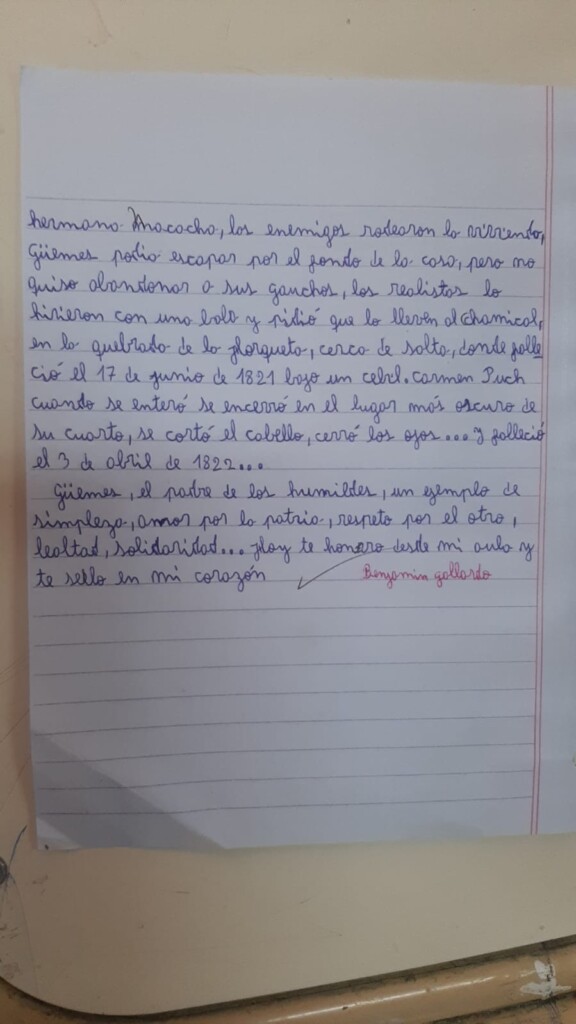 hermana Macacha, los enemigos rodearon la vivienda,
Güemes podia escapar por el fondo de la casa, pero no
quiso abandonar a sus gauchos, los realistas lo
hirieron con una bala y pidió que lo lleven al chamical,
en la quebrada de la Horqueta, cerca de salta, donde falle
ció el 17 de junio de 1821 bajo un cebil. Carmen Puch
cuando se enteró se encerró en el lugar más oscuro de
su cuarto, se cortó el cabello, cerró los ojos... y falleció
el 3 de abril de 1822...
Güemes, el padre de los humildes, un ejemplo de
simpleza, amor por la patria, respeto por el otro,
lealtad, solidaridad... Hoy te honoro desde mi aula y
te sello en mi corazón
Benjamin gallardo